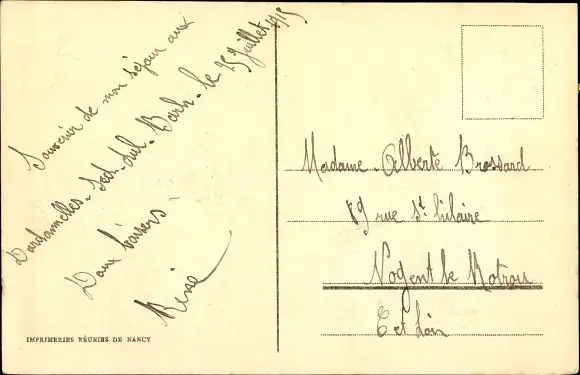 Souvenir de mon séjour aux
Dardannelles - Sed-dul-Barh - le 25 juillet 1915
Doux baisers
René
IMPRIMERIES RÉUNIES DE NANCY
Madame Alberte Brossard
89 rue St hilaire
Nogent le Rotrou
E et Loir